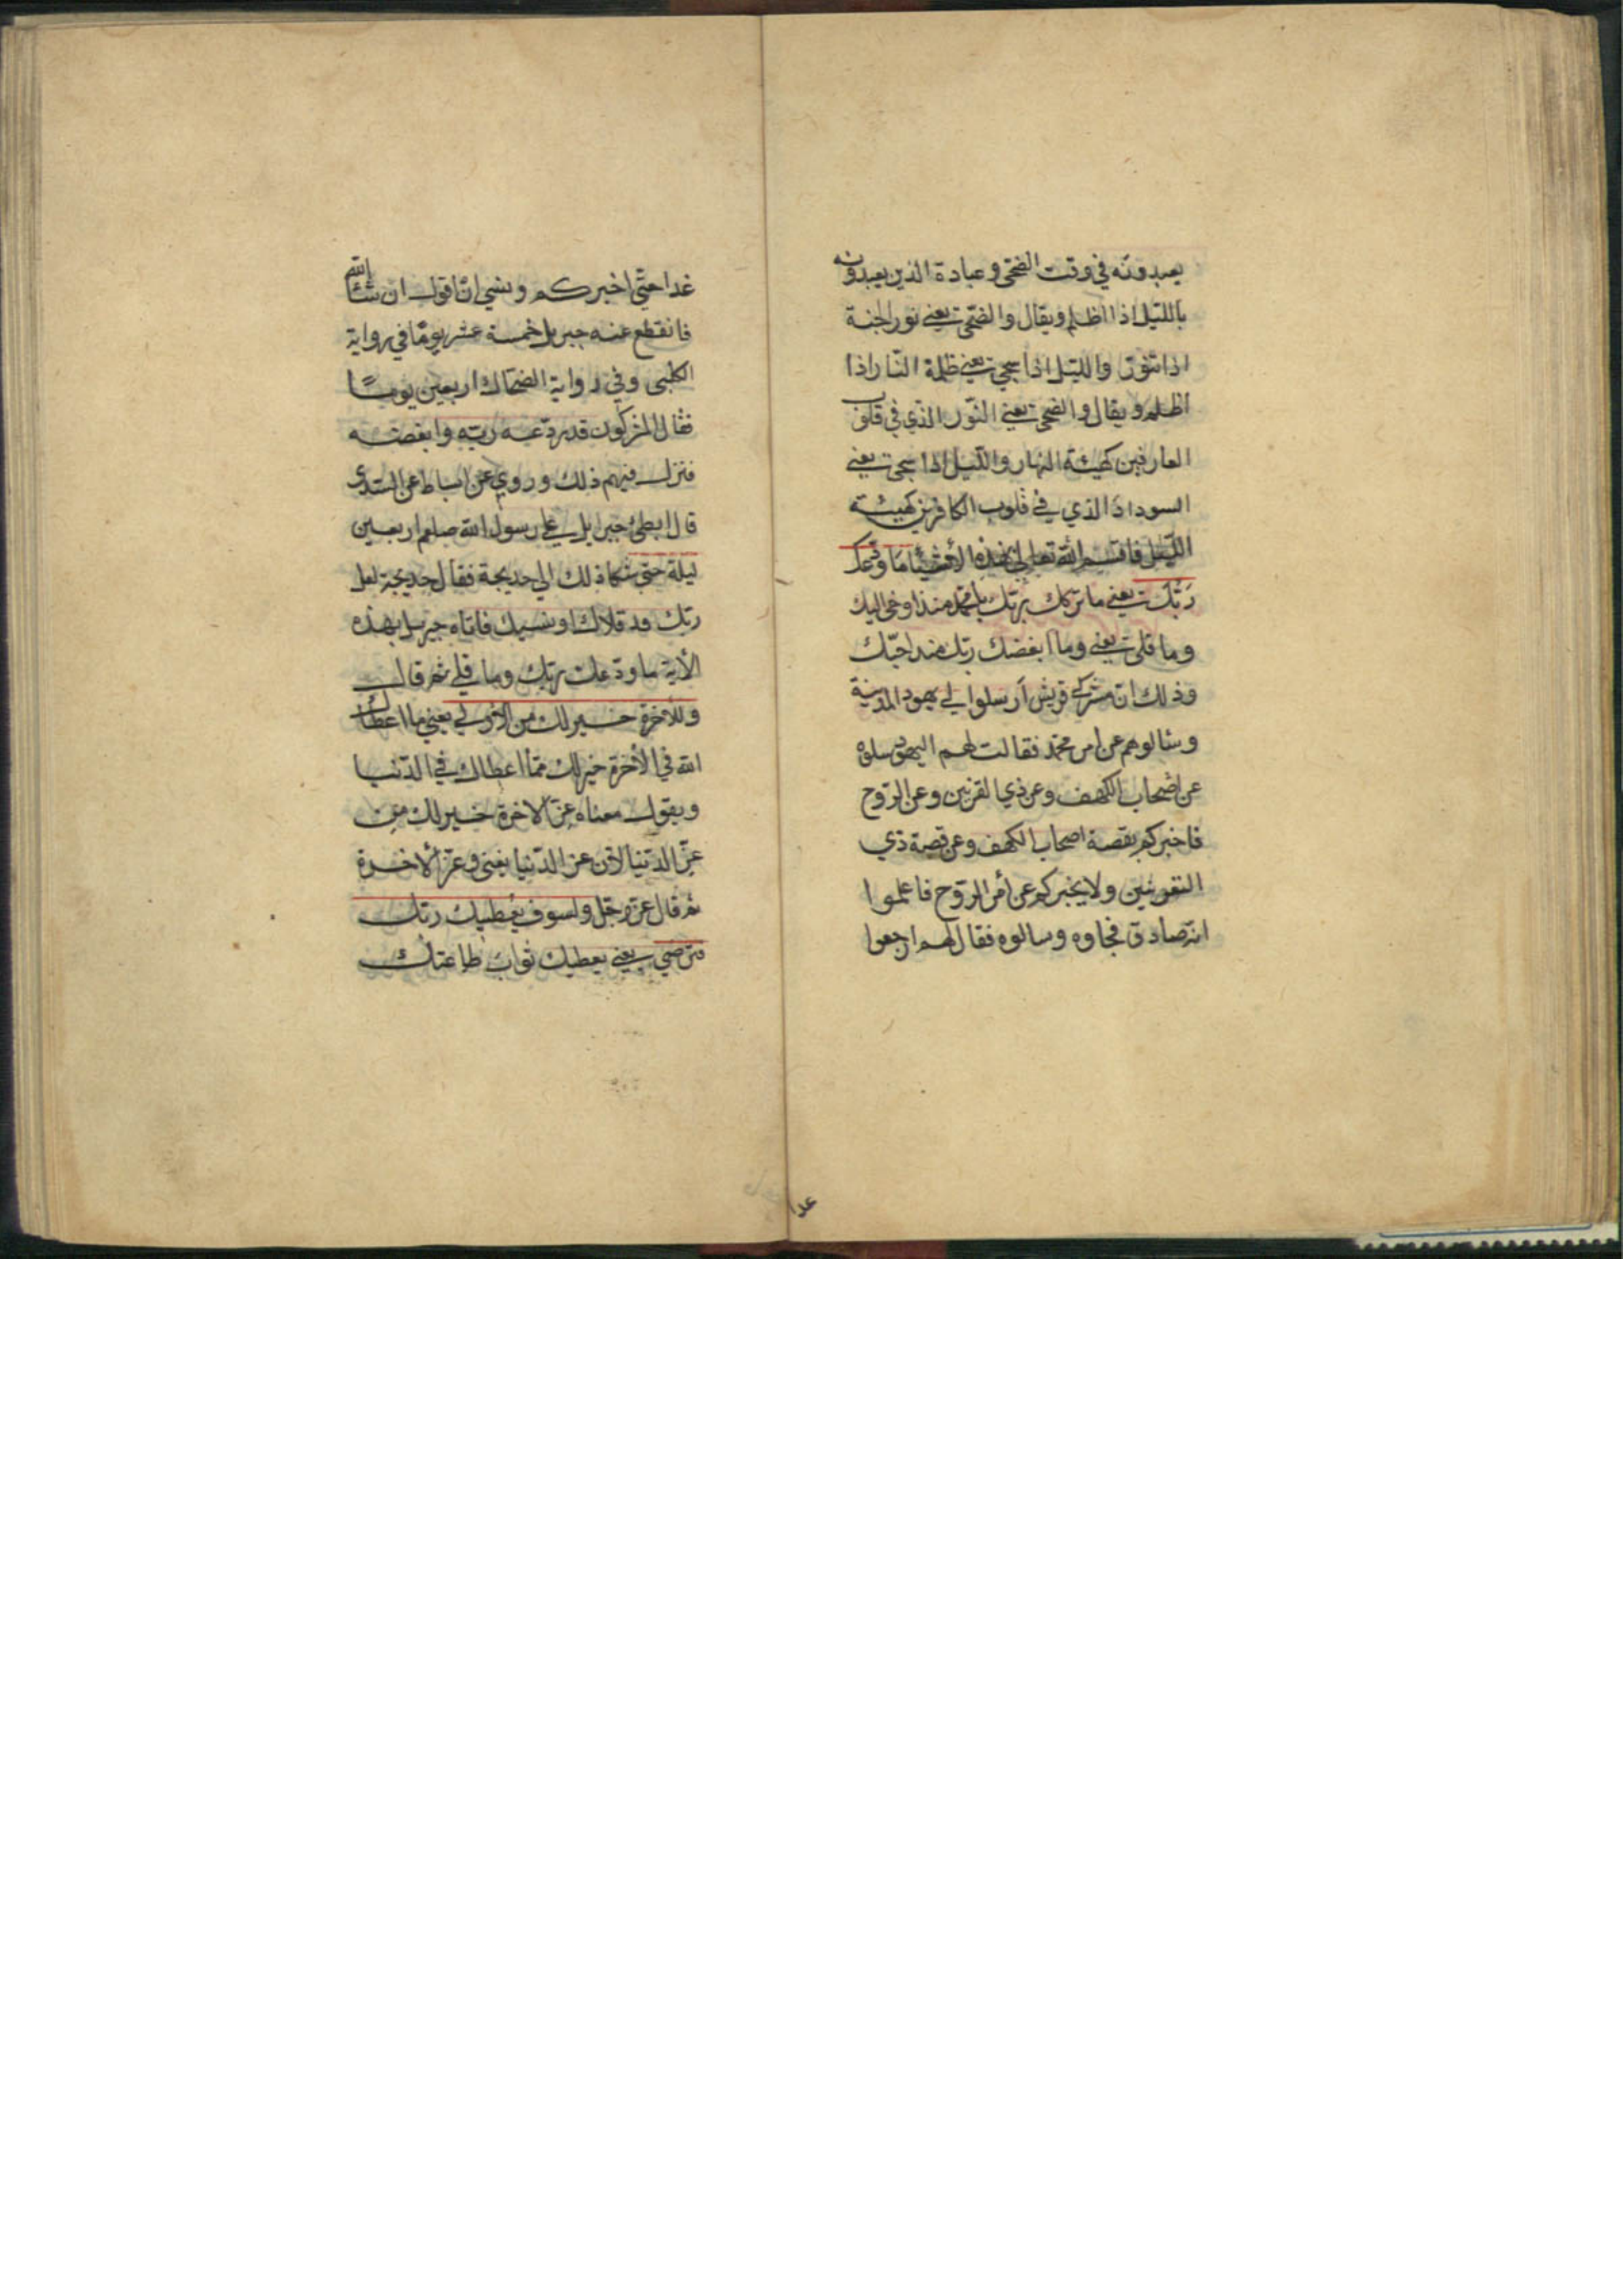 يعبدونه في وقت الضحى وعبادة الذين يعبدونه
بالليل اذا اظلم ويقال والضحى يعني نور الجنة
اذا تنور والليل اذا سجى يعني ظلمة النار اذا
اظلم ويقال والضحى يعني النور الذي في قلوب
العارفين كهيئة النهار والليل اذا سجى يعني
السواد الذي في قلوب الكافرين كهيئة
الليل فاقسم الله تعالى بهذه الأشياء ما ودعك
ربك يعني ما تركك ربك يا محمد منذ اوحى اليك
وما قلى يعني وما ابغضك ربك منذ احبك
وذلك ان مشركي قريش أرسلوا الى يهود المدينة
وسالوهم عن امر محمد فقالت لهم اليهود سلوه
عن اصحاب الكهف وعن ذي القرنين وعن الروح
فاخبركم بقصة اصحاب الكهف وعن قصة ذي
القرنين ولا يخبركم عن أمر الروح فاعلموا
انه صادق فجاوه وسالوه فقال لهم ارجعوا
غدا
غدا حتى اخبركم ونسي ان اقول ان شاء الله
فانقطع عنه جبريل خمسة عشر يوما في رواية
الكلبى وفي رواية الضحاك اربعين يومًا
فقال المشركون قد ودعه ربه وابغضه
فنزل فيهم ذلك وروي عن اسباط عن السدى
قال ابطئ جبرايل على رسول الله صلعم اربعين
ليلة حتى شكا ذلك الى خديجة فقال خديجة لعل
ربك قد قلاك او نسيك فاتاه جبريل بهذه
الأية ما ودعك ربك وما قلى ثم قال
وللأخرة خير لك من الأولى يعني ما اعطاك
الله في الأخرة خير لك مما اعطاك في الدنيا
ويقول معناه عز الاخرة خير لك من
عز الدنيا لأن عز الدنيا يفنى وعز الأخرة
ثم قال عز وجل ولسوف يعطيك ربك
فترضى يعني يعطيك ثواب طاعتك